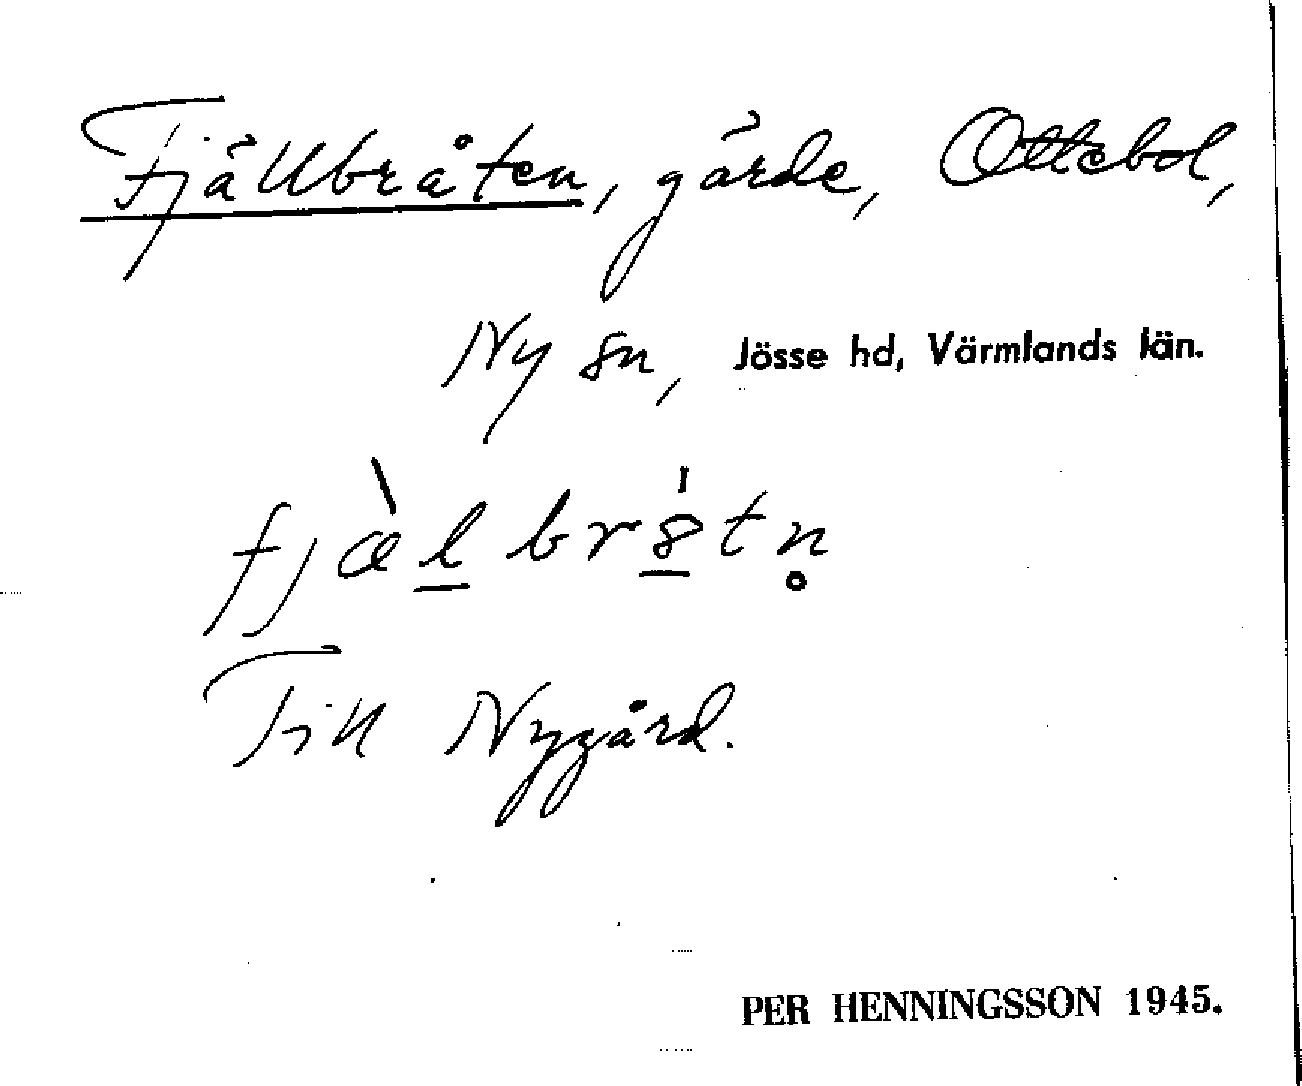 Fjällbråten, gärde, Ottebol,
Ny sn, Jösse hd, Värmlands län.
fjæ̀l̲brȣ̲́tn̥
Till Nygård.
PER HENNINGSSON 1945.